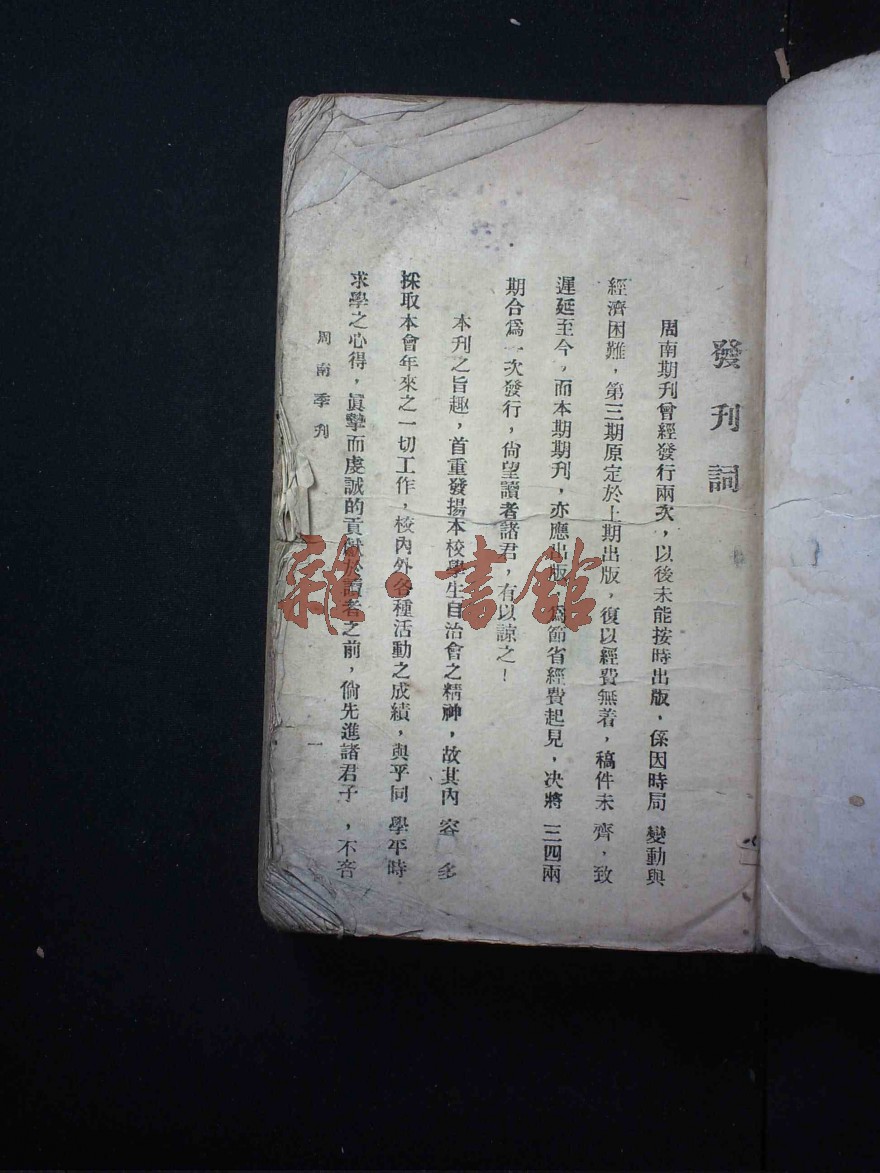 發刊詞
周南期刊曾經發行兩次，以後未能按時出版，係因時局變動與
經濟困難，第三期原定於上期出版，復以經費無着，稿件未齊，致
遲延至今，而本期期刊，亦應出版，爲節省經費起見，决將三四兩
期合爲一次發行，尙望讀者諸君，有以諒之！
本刊之旨趣，首重發揚本校學生自治會之精神，故其內容多
採取本會年來之一切工作，校內外各種活動之成績，與乎同學平時
求學之心得，眞摯而虔誠的貢獻於讀者之前，倘先進諸君子，不吝
周南季刋
一
雜·書館